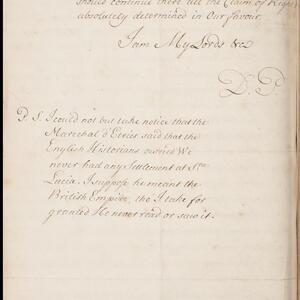 should continue there till the Claim of Right
absolutely determined in Our favour.
I am My Lords &c
D. P.
P S. I could not but take notice that the
Marechal d'Eeries said that the
English Historians owned We
never had any Settlement at Sta
Lucia. I suppose he meant the
British Empire, tho I take for
granted He never read or saw it.